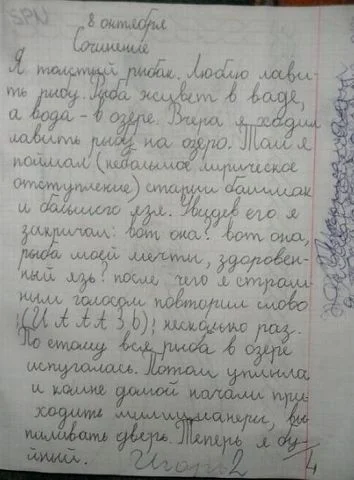 SPN
8 октября
Сочинение
Я толстый рыбак. Люблю лави-
ть рыбу. Рыба жывет в ваде,
а вода - в озере. Вчера я ходил
лавить рыбу на озеро. Там я
поймал (небальшое лирическое
отступление) старый балмак
и большого язя. Увидев его я
закричал: вот она! вот она,
рыба моей мечты, здоровен-
ный язь! после, чего я страш-
ным голосом повторил слово
несколько раз.
По етому вся рыба в озере
испугалась. Потом уплыла
и комне домой начали при-
ходить милицианеры, вы-
пиливать дверь. Теперь я бу-
йный. Игорь 2